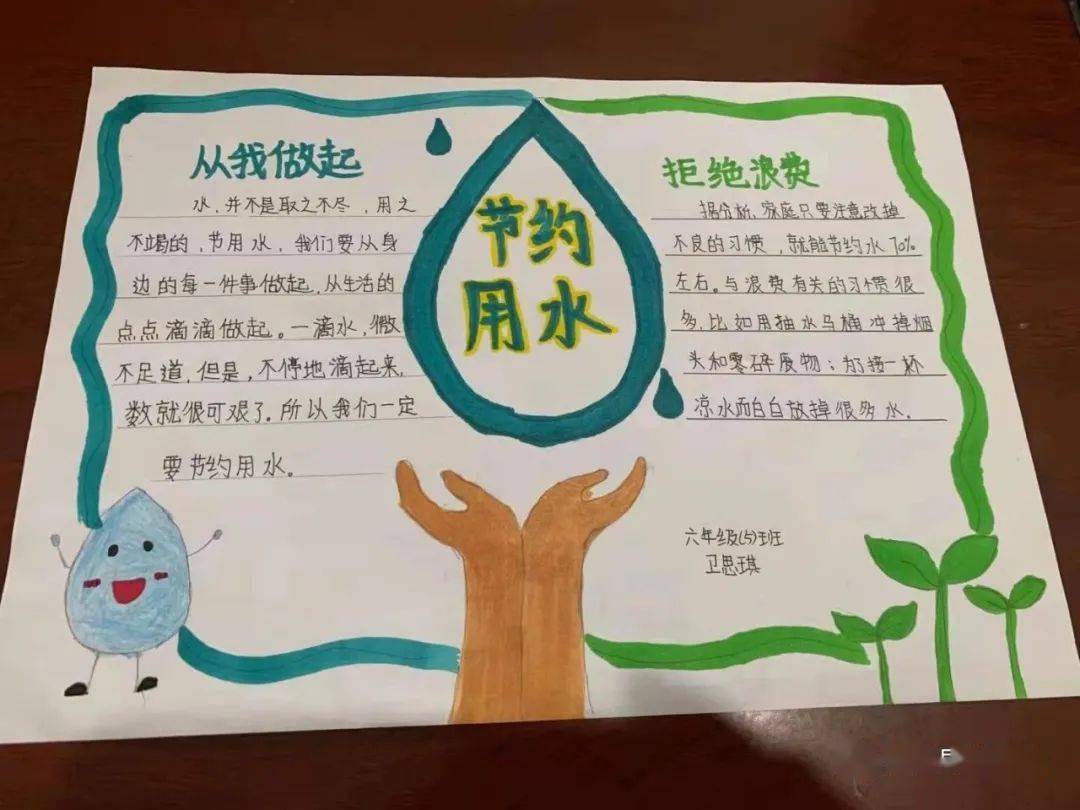 从我做起
水,并不是取之不尽,用之
不竭的,节用水,我们要从身
边的每一件事做起,从生活的
点点滴滴做起。一滴水,微
不足道,但是,不停地滴起来,
数就很可艰了。所以我们一定
要节约用水。
节约
用水
拒绝浪费
据分析,家庭只要注意改掉
不良的习惯,就能节约水70%
左右。与浪费有关的习惯很
多,比如用抽水马桶冲掉烟
头和零碎废物;为接一杯
凉水而白白放掉很多水.
六年级(5)班
卫思琪
F